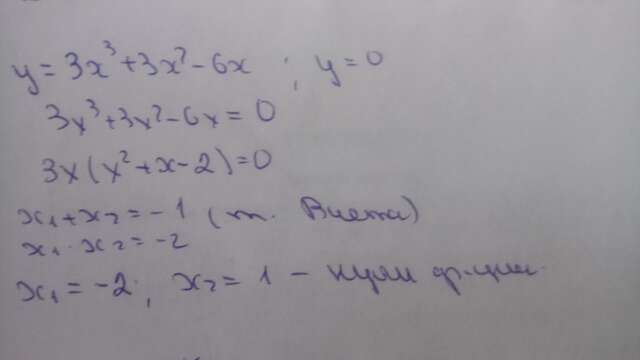 y = 3x³ + 3x² - 6x ; y = 0
3x³ + 3x² - 6x = 0
3x(x² + x - 2) = 0
x₁ + x₂ = -1 (т. Виета)
x₁ · x₂ = -2
x₁ = -2; x₂ = 1 – нули ф-ции.